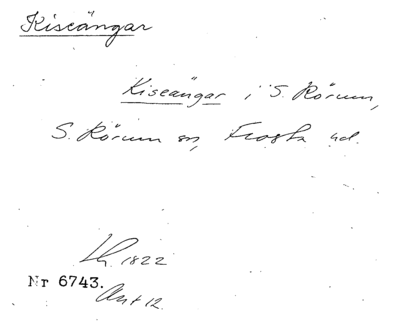 Kiseängar
Kiseängar i S. Rörum,
S. Rörum sn, Frosta hd.
Lh. 1822
Nr 6743.
Akt 12.